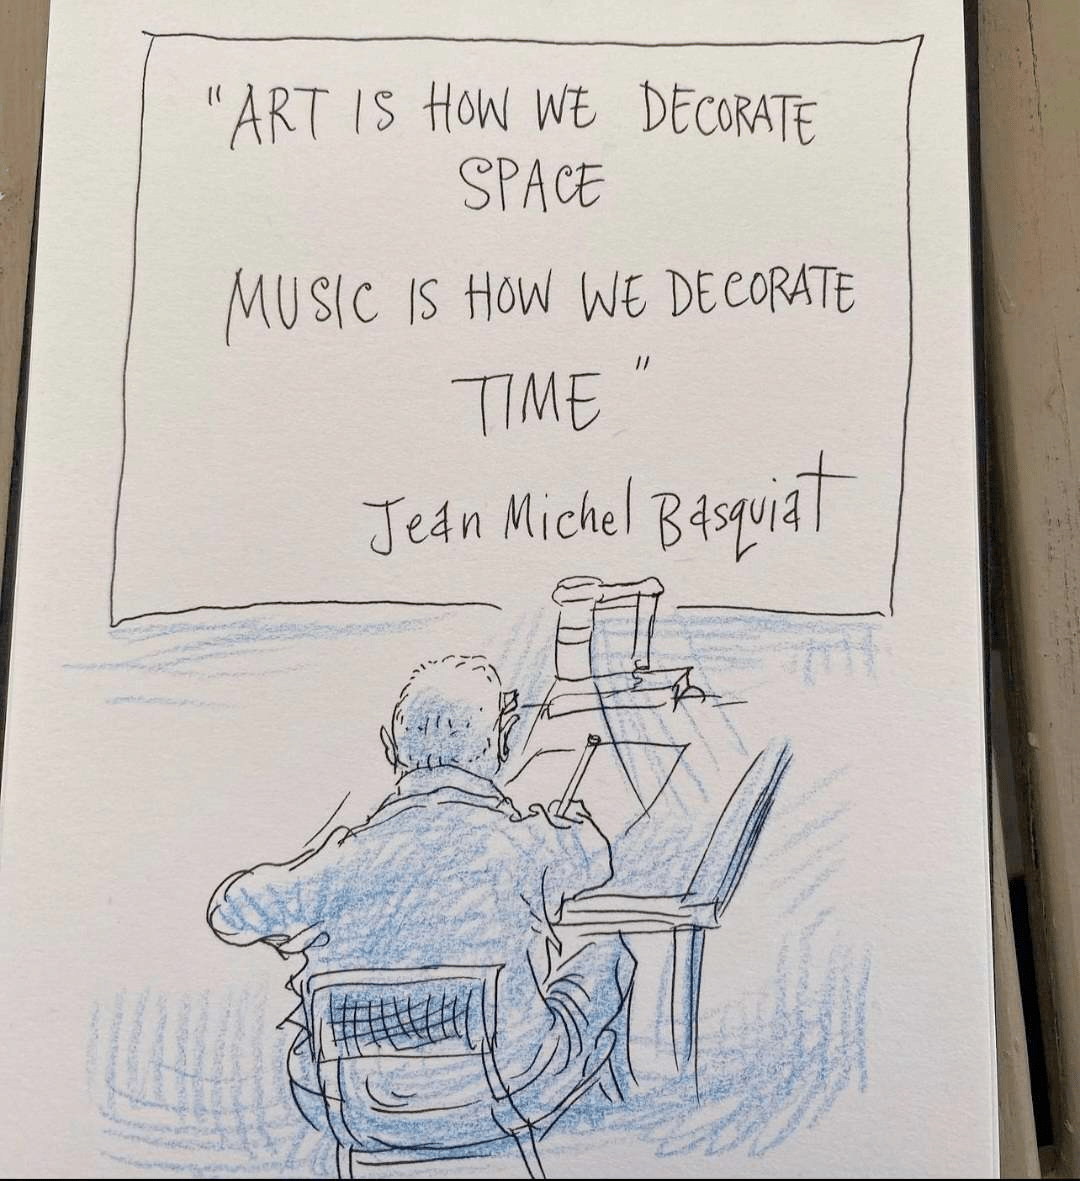 "ART IS HOW WE DECORATE
SPACE
MUSIC IS HOW WE DECORATE
TIME"
Jean Michel Basquiat